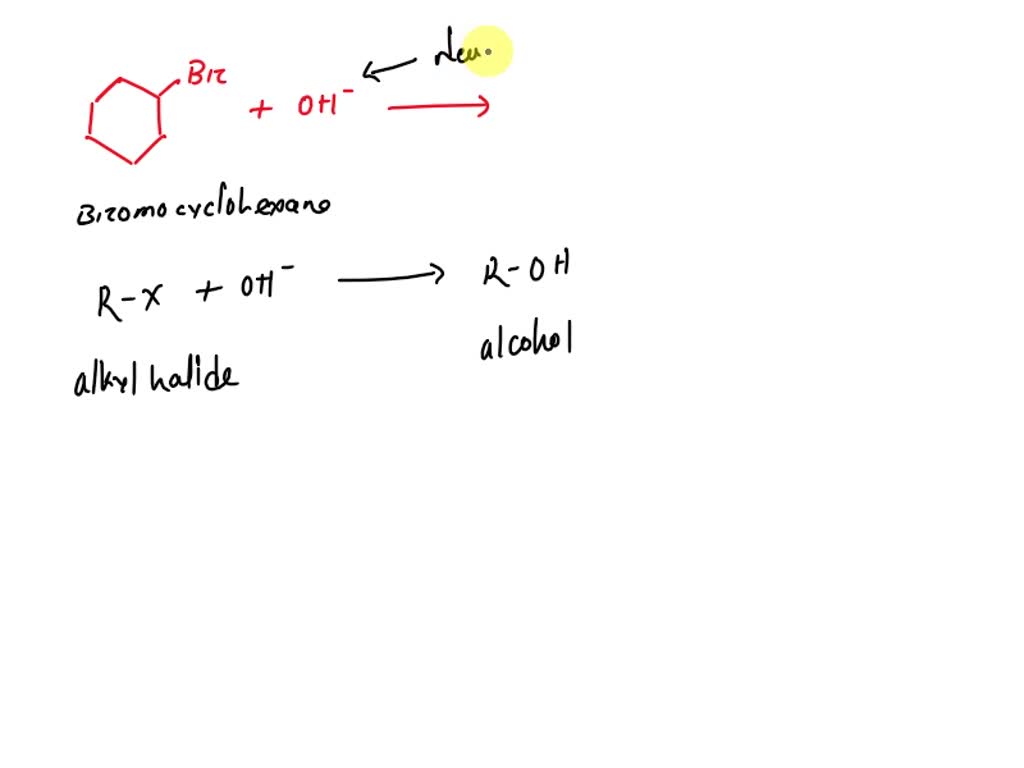 Br
+ OH⁻ ⟶
Bromocyclohexane
R-X + OH⁻ ⟶ R-OH
alkyl halide
alcohol